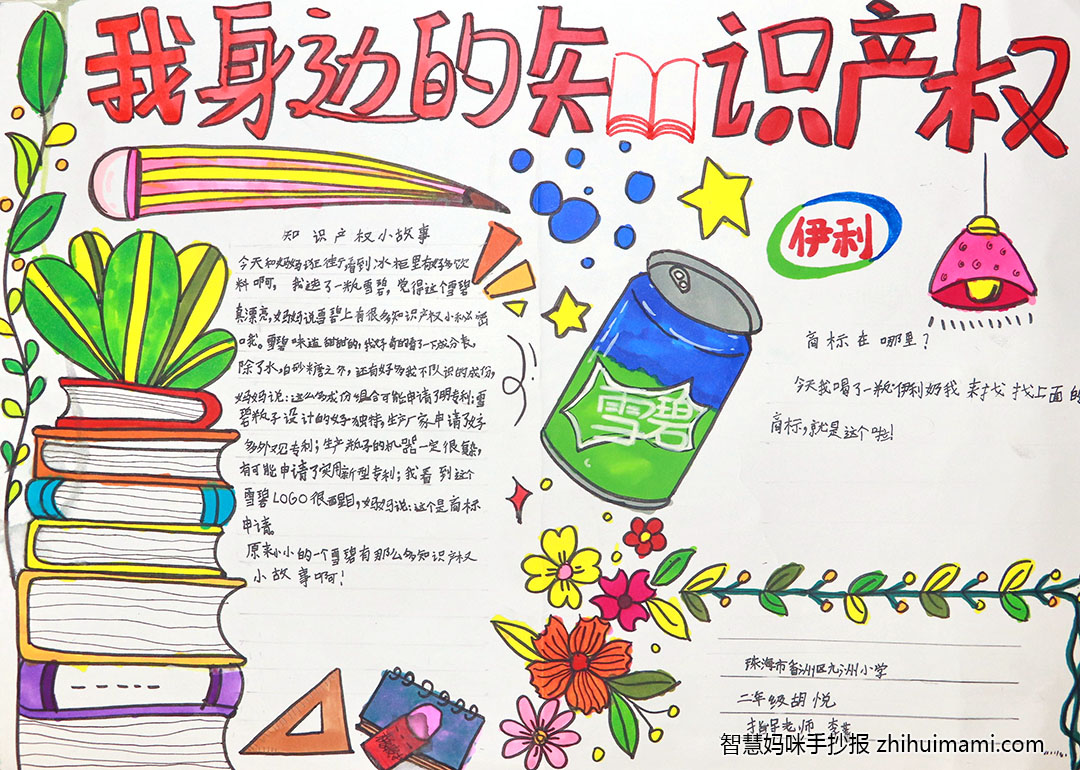 我身边的知识产权
知识产权小故事
今天和妈妈逛街看到冰柜里有好多饮
料啊，我选了一瓶雪碧，觉得这个雪碧
真漂亮，妈妈说雪碧上有很多知识产权小秘密
哦。雪碧味道甜甜的，我好奇的看了一下成分表，
除了水，白砂糖之外，还有好多我不认识的成份，
妈妈说：这么多成份组合可能申请了发明专利；雪
碧瓶子设计的好独特，生产厂家申请了好
多外观专利；生产瓶子的机器一定很复杂，
有可能申请了实用新型专利；我看到这个
雪碧LOGO很醒目，妈妈说：这个是商标
申请。
原来小小的一个雪碧有那么多知识产权
小故事啊！
雪碧
伊利
商标在哪里？
今天我喝了一瓶伊利奶我来找找上面的
商标，就是这个啦！
珠海市香洲区九洲小学
二年级胡悦
指导老师 李
智慧妈咪手抄报 zhihuimami.com